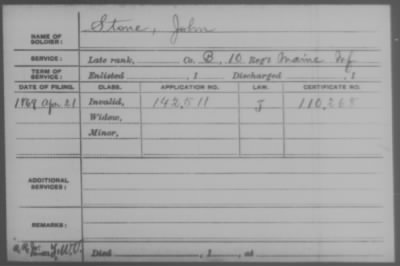 Stone, John
NAME OF SOLDIER:
SERVICE: Late rank, Co. B, 10 Reg't Maine Inf
TERM OF SERVICE: Enlisted , 1 Discharged , 1
DATE OF FILING. CLASS. APPLICATION NO. LAW. CERTIFICATE NO.
1869 Apr. 21 Invalid, 142,511 110,268
Widow,
Minor,
ADDITIONAL SERVICES:
REMARKS:
Died , 1 , at